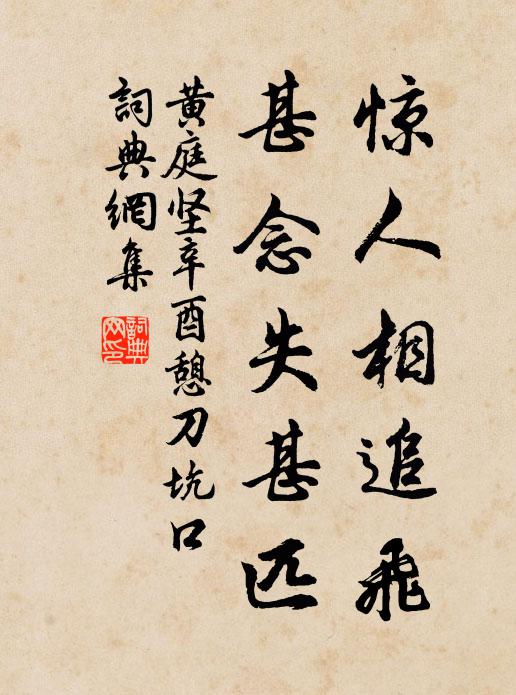 惊人相追飛
甚念失甚匹
黄庭坚辛酉憩刀坑口
詞典網集
詞典網印